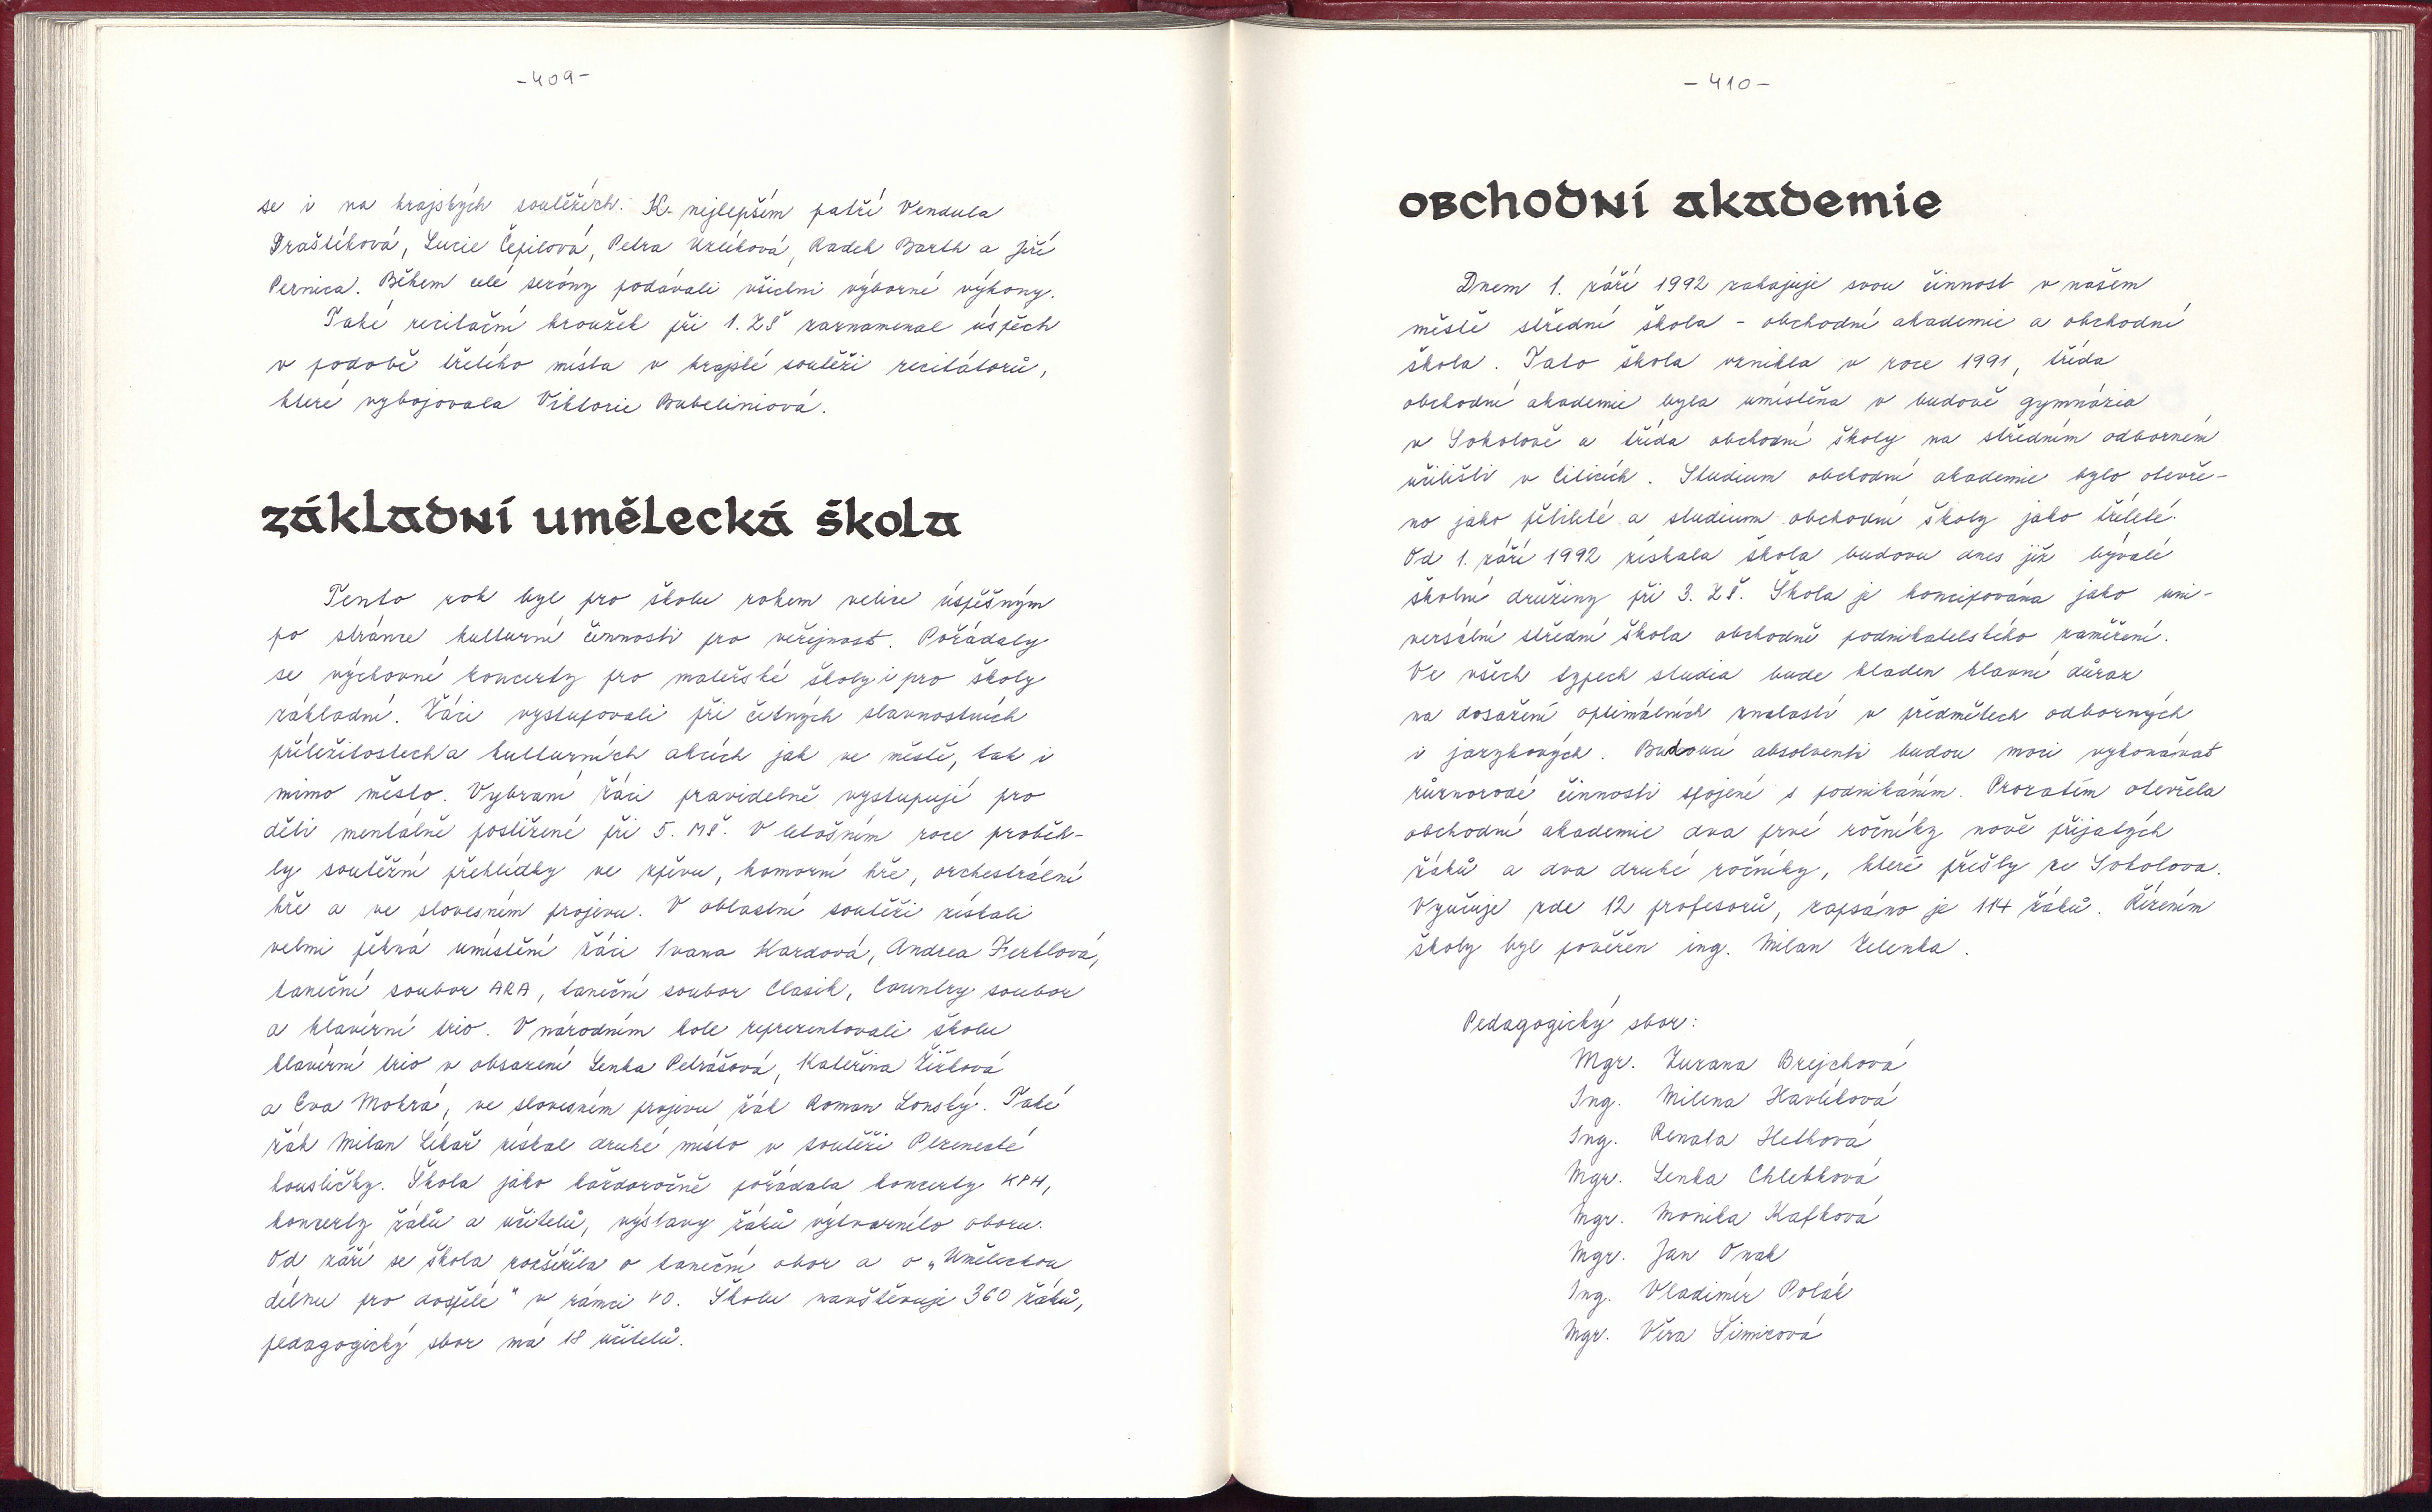 -409-
se i na krajských soutěžích. K nejlepším patří Vendula
Draštíková, Lucie Čepilová, Petra Uzlíková, Radek Barth a Jiří
Pernica. Během celé sezóny podávali všichni výborné výkony.
Také recitační kroužek při 1. ZŠ zaznamenal úspěch
v podobě třetího místa v krajské soutěži recitátorů,
které vybojovala Viktorie Bubeliniová.
základní umělecká škola
Tento rok byl pro školu rokem velice úspěšným
po stránce kulturní činnosti pro veřejnost. Pořádaly
se výchovné koncerty pro mateřské školy i pro školy
základní. Žáci vystupovali při četných slavnostních
příležitostech a kulturních akcích jak ve městě, tak i
mimo město. Vybraní žáci pravidelně vystupují pro
děti mentálně postižené při 5. MŠ. V letošním roce proběh-
ly soutěžní přehlídky ve zpěvu, komorní hře, orchestrální
hře a ve slovesném projevu. V oblastní soutěži získali
velmi pěkná umístění žáci Ivana Kardová, Andrea Ferklová,
taneční soubor ARA, taneční soubor Clasik, Country soubor
a klavírní trio. V národním kole reprezentovali školu
klavírní trio v obsazení Lenka Petrášová, Kateřina Žižková
a Eva Mokrá, ve slovesném projevu žák Roman Lonský. Také
žák Milan Lékař získal druhé místo v soutěži Plzenecké
housličky. Škola jako každoročně pořádala koncerty KPH,
koncerty žáků a učitelů, výstavy žáků výtvarného oboru.
Od září se škola rozšířila o taneční obor a o „Uměleckou
dílnu pro dospělé" v rámci VO. Školu navštěvuje 360 žáků,
pedagogický sbor má 18 učitelů.
-410-
obchodní akademie
Dnem 1. září 1992 zahajuje svou činnost v našem
městě střední škola - obchodní akademie a obchodní
škola. Tato škola vznikla v roce 1991, třída
obchodní akademie byla umístěna v budově gymnázia
v Sokolově a třída obchodní školy na středním odborném
učilišti v Citicích. Studium obchodní akademie bylo otevře-
no jako pětileté a studium obchodní školy jako tříleté.
Od 1. září 1992 získala škola budovu dnes již bývalé
školní družiny při 3. ZŠ. Škola je koncipována jako uni-
versální střední škola obchodně podnikatelského zaměření.
Ve všech typech studia bude kladen hlavní důraz
na dosažení optimálních znalostí v předmětech odborných
i jazykových. Budoucí absolventi budou moci vykonávat
různorodé činnosti spojené s podnikáním. Prozatím otevřela
obchodní akademie dva prvé ročníky nově přijatých
žáků a dva druhé ročníky, které přešly ze Sokolova.
Vyučuje zde 12 profesorů, zapsáno je 114 žáků. Řízením
školy byl pověřen ing. Milan Zelenka.
Pedagogický sbor:
Mgr. Zuzana Brejchová
Ing. Milena Havlíková
Ing. Renata Hetková
Mgr. Lenka Chlebková
Mgr. Monika Kafková
Mgr. Jan Onak
Ing. Vladimír Polák
Mgr. Věra Šimicová